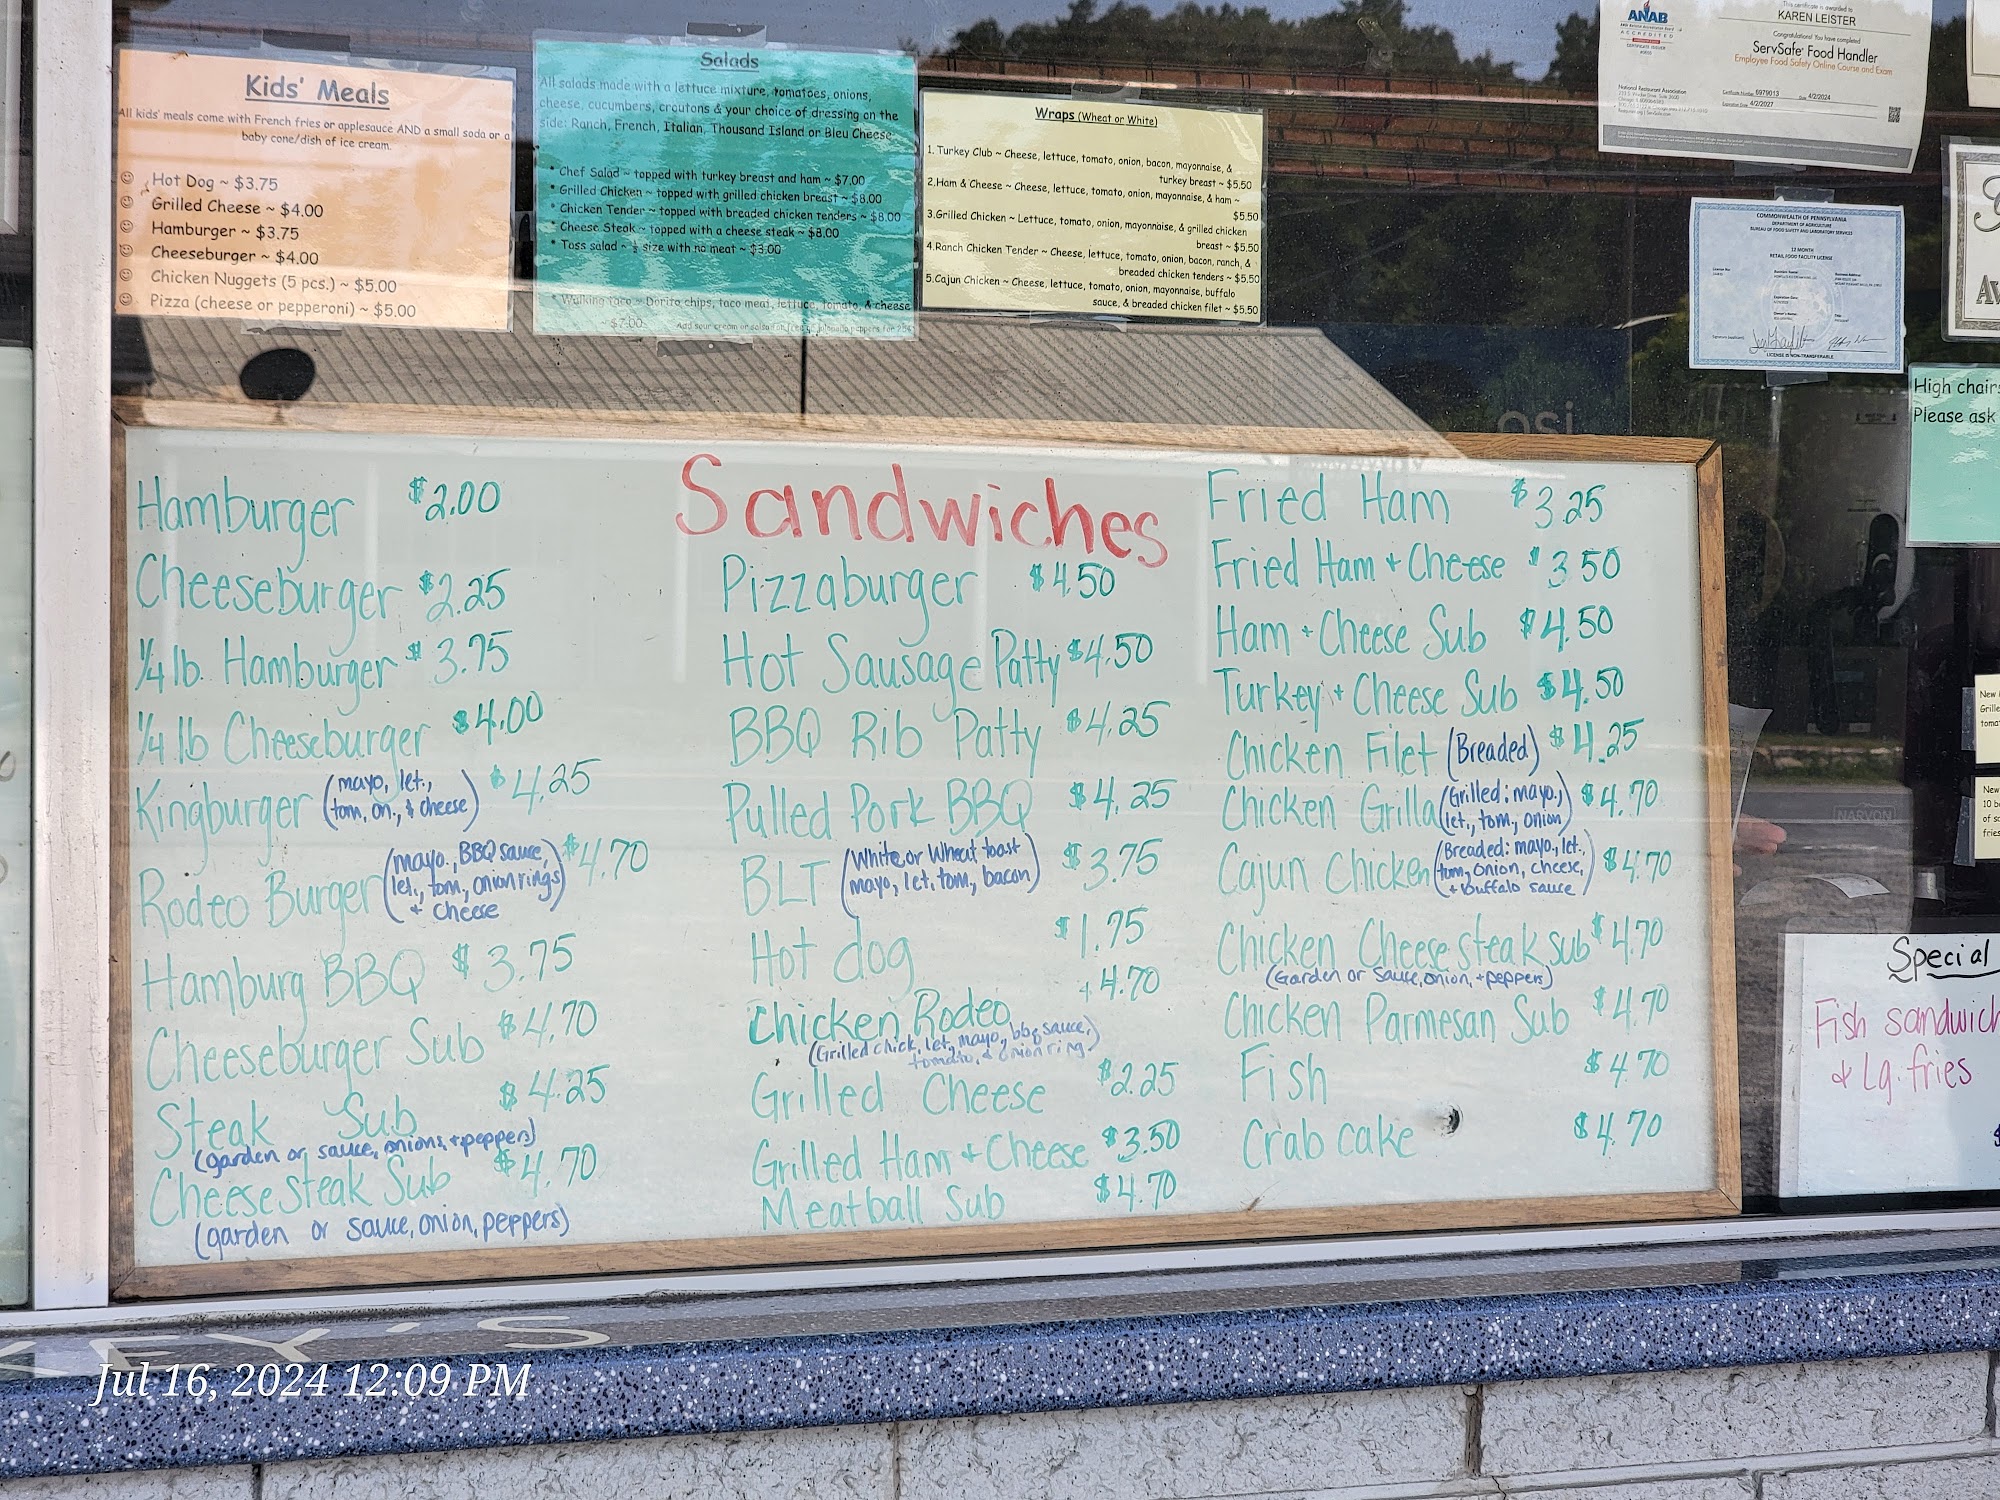 Kids' Meals
All kids' meals come with French fries or applesauce AND a small soda or a
baby cone/dish of ice cream.
Hot Dog ~ $3.75
Grilled Cheese ~ $4.00
Hamburger ~ $3.75
Cheeseburger ~ $4.00
Chicken Nuggets (5 pcs.) ~ $5.00
Pizza (cheese or pepperoni) ~ $5.00
Salads
All salads made with a lettuce mixture, tomatoes, onions,
cheese, cucumbers, croutons & your choice of dressing on the
side: Ranch, French, Italian, Thousand Island or Bleu Cheese.
* Chef Salad ~ topped with turkey breast and ham ~ $7.00
* Grilled Chicken ~ topped with grilled chicken breast ~ $8.00
* Chicken Tender ~ topped with breaded chicken tenders ~ $8.00
* Cheese Steak ~ topped with a cheese steak ~ $8.00
* Toss salad ~ ½ size with no meat ~ $3.00
* Walking taco ~ Dorito chips, taco meat, lettuce, tomato, & cheese
~ $7.00 Add sour cream or salsa for
Wraps (Wheat or White)
1. Turkey Club ~ Cheese, lettuce, tomato, onion, bacon, mayonnaise, &
turkey breast ~ $5.50
2.Ham & Cheese ~ Cheese, lettuce, tomato, onion, mayonnaise, & ham ~
$5.50
3.Grilled Chicken ~ Lettuce, tomato, onion, mayonnaise, & grilled chicken
breast ~ $5.50
4.Ranch Chicken Tender ~ Cheese, lettuce, tomato, onion, bacon, ranch, &
breaded chicken tenders ~ $5.50
5.Cajun Chicken ~ Cheese, lettuce, tomato, onion, mayonnaise, buffalo
sauce, & breaded chicken filet ~ $5.50
ANAB
ACCREDITED
This certificate is awarded to
KAREN LEISTER
Congratulations! You have completed
ServSafe® Food Handler
Employee Food Safety Online Course and Exam
National Restaurant Association
Certificate Number 6979013 Date 4/2/2024
Expiration Date 4/2/2027
COMMONWEALTH OF PENNSYLVANIA
DEPARTMENT OF AGRICULTURE
BUREAU OF FOOD SAFETY AND LABORATORY SERVICES
12 MONTH
RETAIL FOOD FACILITY LICENSE
LICENSE IS NON-TRANSFERABLE
High chair
Please ask
Sandwiches
Hamburger $2.00
Cheeseburger $2.25
1/4 lb. Hamburger $3.75
1/4 lb Cheeseburger $4.00
Kingburger (mayo, let., $4.25
tom, on., & cheese)
Rodeo Burger (mayo., BBQ sauce, $4.70
let., tom., onion rings
+ cheese
Hamburg BBQ $3.75
Cheeseburger Sub $4.70
Steak Sub $4.25
(garden or sauce, onions, + peppers)
Cheesesteak Sub $4.70
(garden or sauce, onion, peppers)
Pizzaburger $4.50
Hot Sausage Patty $4.50
BBQ Rib Patty $4.25
Pulled Pork BBQ $4.25
BLT (White or Wheat toast $3.75
mayo, let. tom., bacon)
Hot dog $1.75
Chicken Rodeo 4.70
(Grilled chick, let, mayo, bbq sauce,
tomato, & onion ring)
Grilled Cheese $2.25
Grilled Ham + Cheese $3.50
Meatball Sub $4.70
Fried Ham $3.25
Fried Ham + Cheese $3.50
Ham + Cheese Sub $4.50
Turkey + Cheese Sub $4.50
Chicken Filet (Breaded) $4.25
Chicken Grilla (Grilled: mayo., $4.70
let., tom., onion)
Cajun Chicken (Breaded: mayo., let. $4.70
tom, onion, cheese,
+ buffalo sauce
Chicken Cheese steak sub $4.70
(Garden or sauce, onion, + peppers)
Chicken Parmesan Sub $4.70
Fish $4.70
Crab cake $4.70
NARVON
Special
Fish sandwich
& Lg. fries
$
KEY'S
Jul 16, 2024 12:09 PM